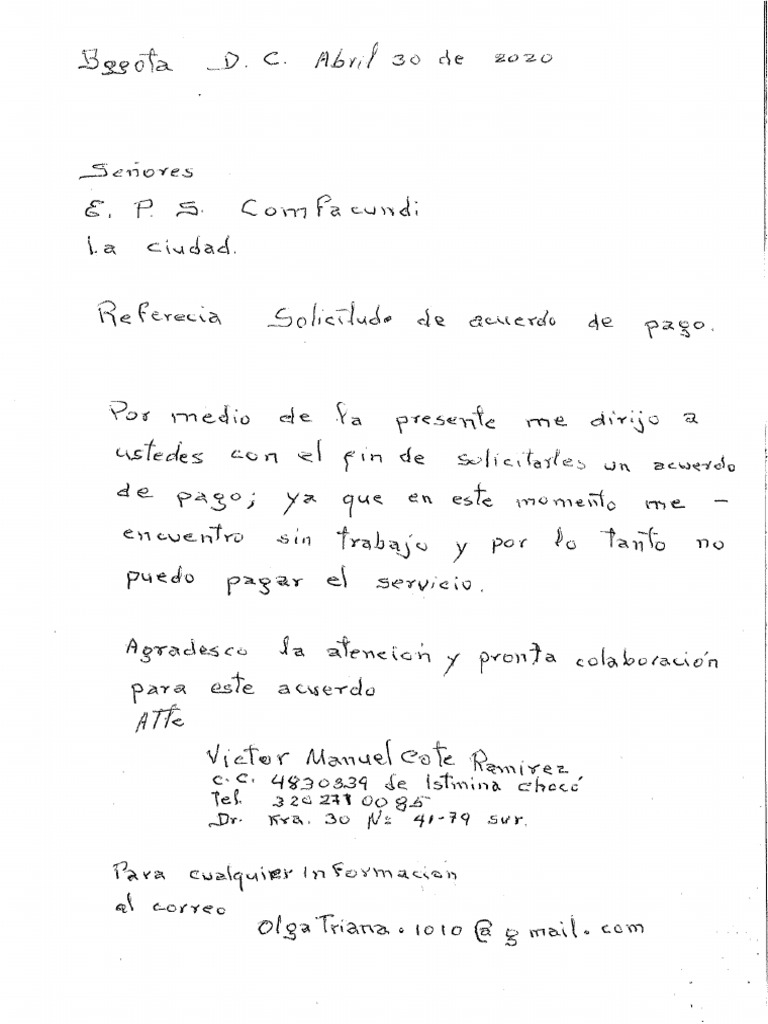 Bogota D. C. Abril 30 de 2020
Señores
E. P. S. Comfacundi
La ciudad.
Referecia Solicitud de acuerdo de pago.
Por medio de la presente me dirijo a
ustedes con el fin de solicitarles un acuerdo
de pago; ya que en este momento me -
encuentro sin trabajo y por lo tanto no
puedo pagar el servicio.
Agradesco la atencion y pronta colaboración
para este acuerdo
ATTe
Victor Manuel Cote Ramirez
c.c. 4830339 de Istmina chocó
Tel. 320 271 00 85
Dr. Kra. 30 Nº 41-79 sur.
Para cualquier Informacion
al correo
OlgaTriana.1010@gmail.com